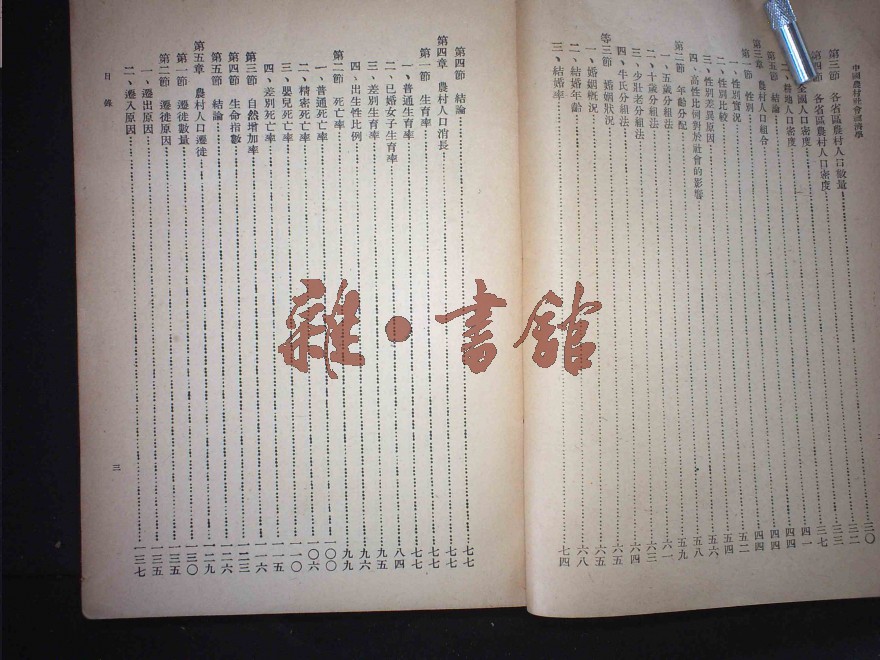 中國農村社會經濟學
第三節 各省區農村人口數量……三〇
第四節 各省區農村人口密度……三二
一、全國人口密度……三三
二、耕地人口密度……三七
第五節 結論……四一
第三章 農村人口組合……四四
第一節 性別……四四
一、性別實況……四四
二、性別比較……五二
三、性別差異原因……五四
四、高性比例對於社會的影響……五六
第二節 年齡分配……五八
一、五歲分組法……五九
二、十歲分組法……六一
三、少壯老分組法……六三
四、牛氏分組法……六四
等三節 婚姻狀況……六五
一、婚姻概況……六五
二、結婚年齡……六八
三、結婚率……七四
第四節 結論……七七
第四章 農村人口消長……七七
第一節 生育率……七七
一、普通生育率……七七
二、已婚女子生育率……八四
三、差別生育率……九五
四、出生性比例……九六
第二節 死亡率……九九
一、普通死亡率……一〇〇
二、精密死亡率……一〇六
三、嬰兒死亡率……一一〇
四、差別死亡率……一一五
第三節 自然增加率……一一六
第四節 生命指數……一二三
第五節 結論……一二六
第五章 農村人口遷徙……一二九
第一節 遷徙數量……一三〇
第二節 遷徙原因……一三五
一、遷出原因……一三五
二、遷入原因……一三七
目錄
三
雜·書館